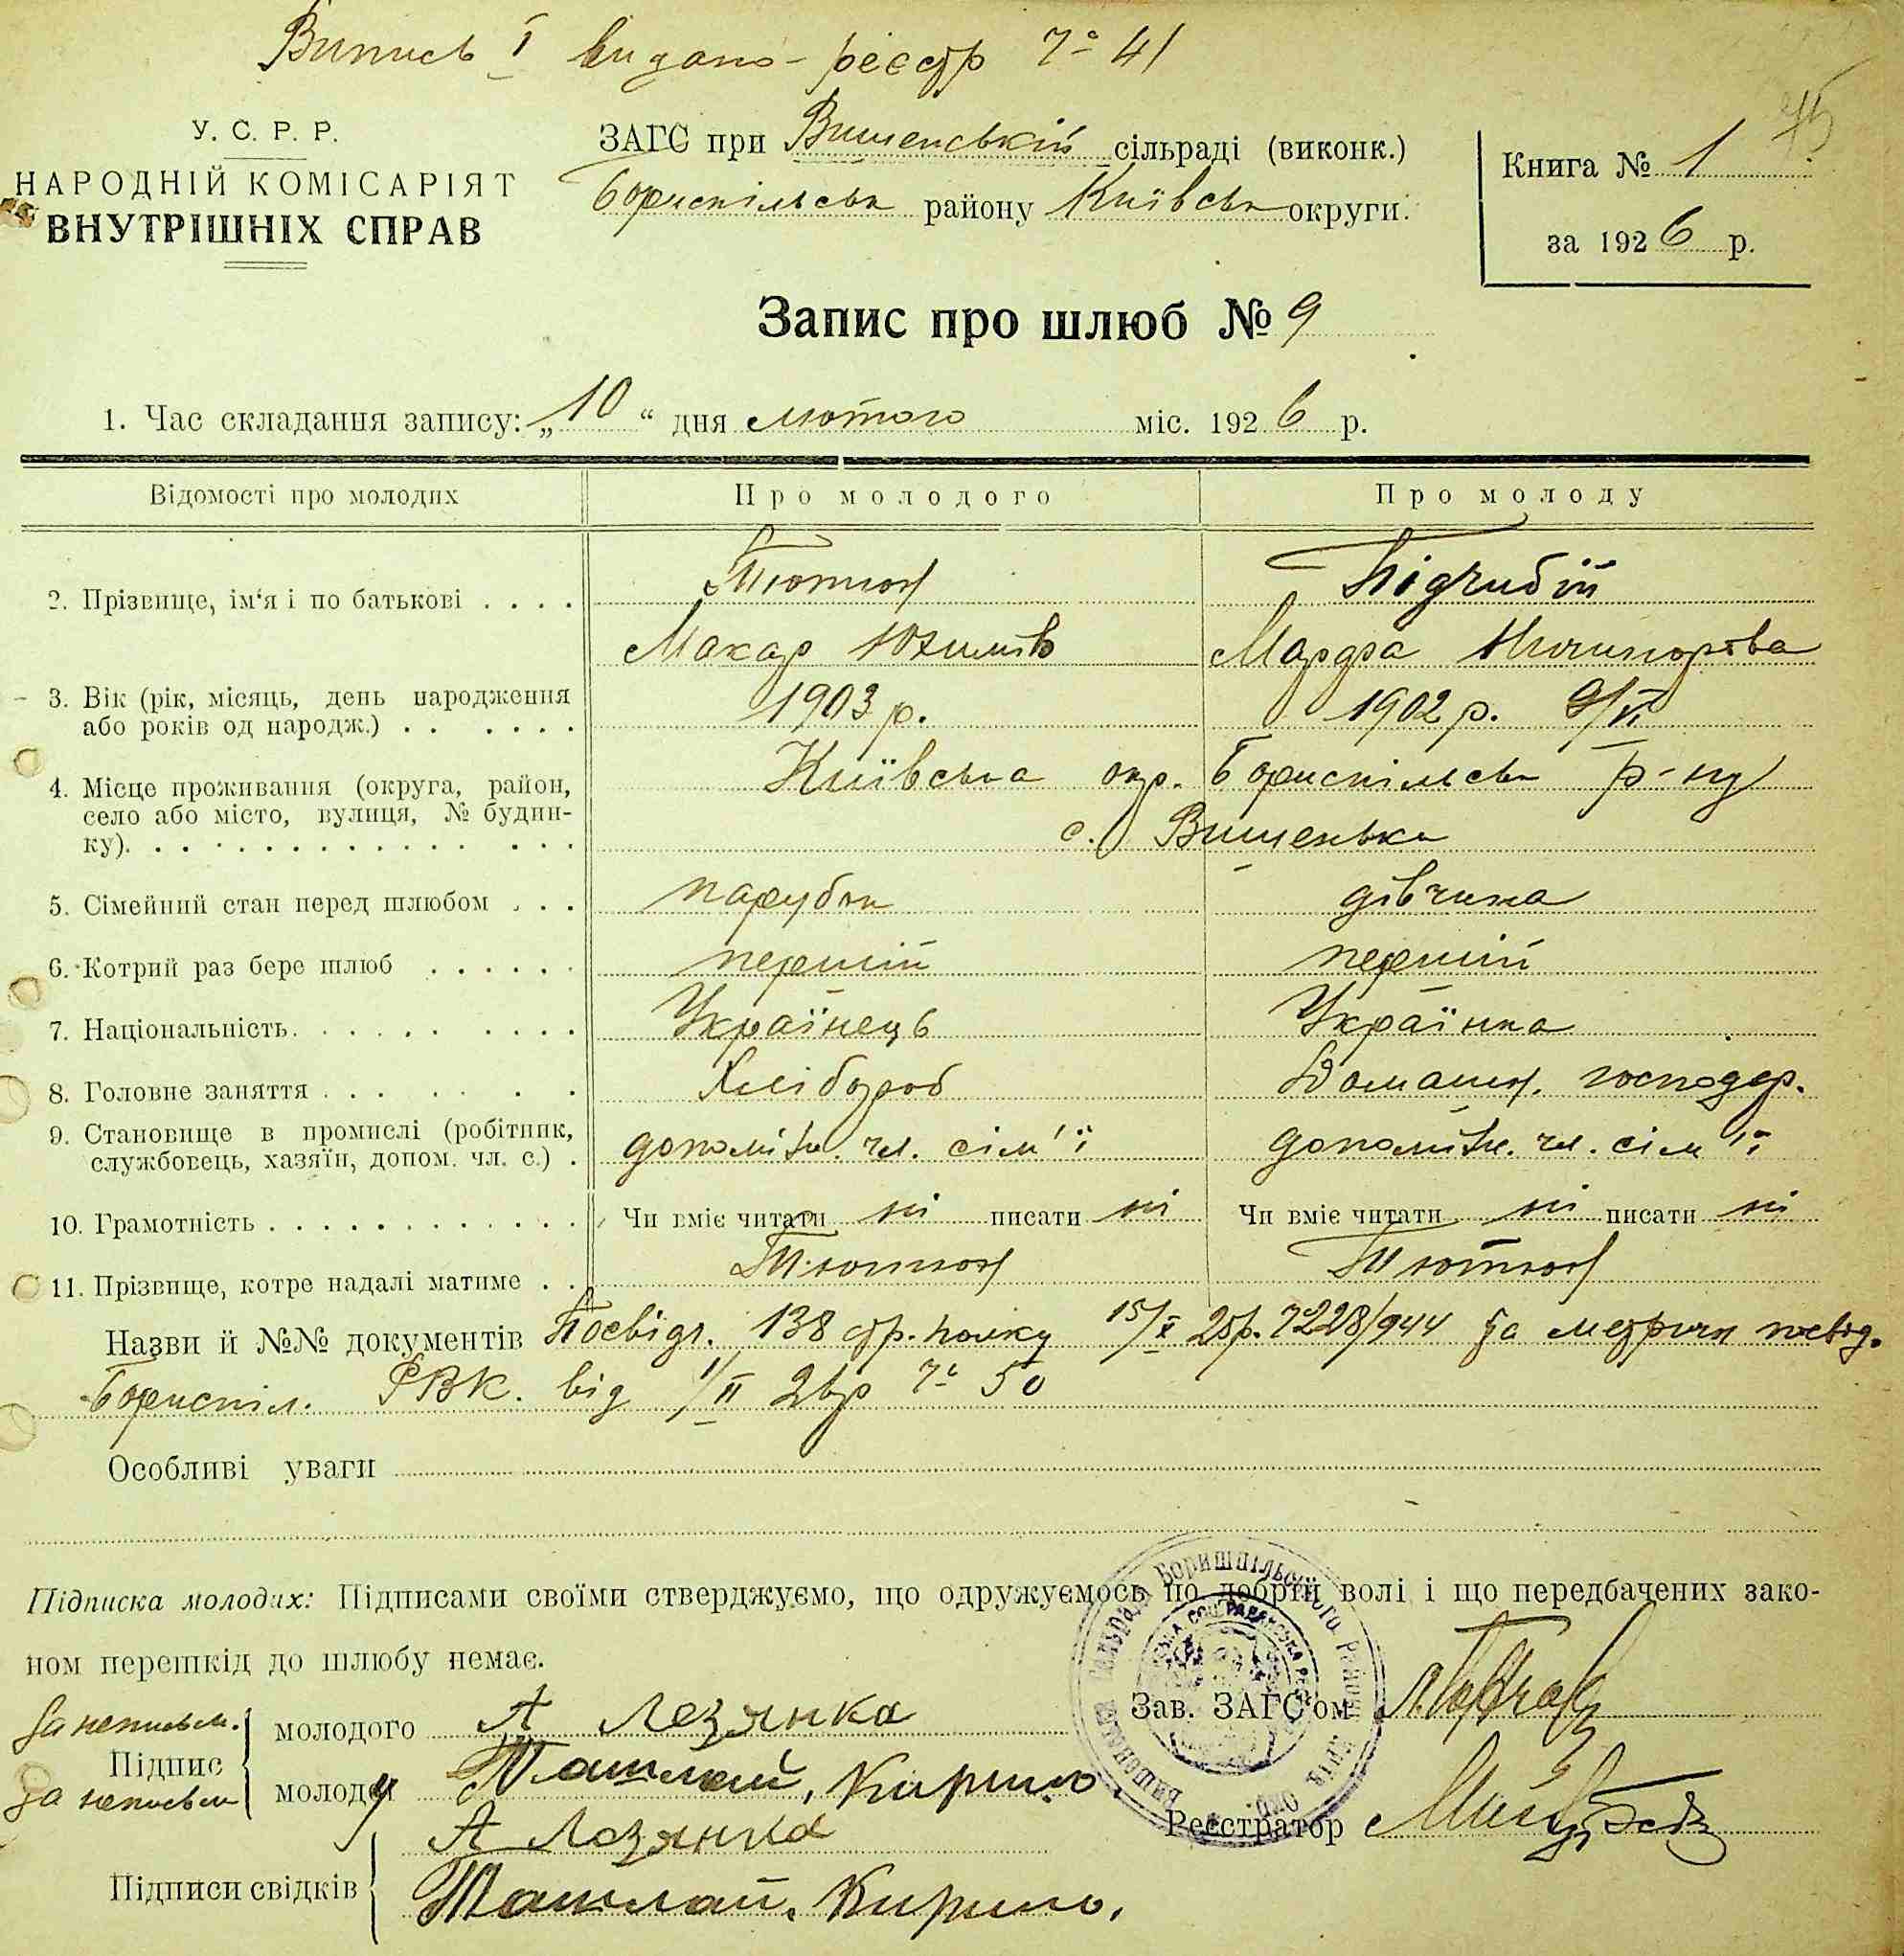 Випись І видано - реєстр № 41
75
У. С. Р. Р.
НАРОДНІЙ КОМІСАРІЯТ
ВНУТРІШНІХ СПРАВ
ЗАГС при Вишенській сільраді (виконк.)
Бориспільськ району Київськ округи.
Книга № 1
за 1926 р.
Запис про шлюб № 9
1. Час складання запису: „10“ дня лютого міс. 1926 р.
Відомості про молодих
Про молодого
Про молоду
2. Прізвище, ім‘я і по батькові . . . .
Тютюн
Підгубій
Макар Юхимів
Марфа Ничипорова
3. Вік (рік, місяць, день народження
або років од народж.) . . . . . .
1903 р.
1902 р. 9/VI
4. Місце проживання (округа, район,
село або місто, вулиця, № будин-
ку). . . . . . . . . . . . . . . .
Київська окр. Бориспільськ р-ну
с. Вишенька
5. Сімейний стан перед шлюбом . . .
парубок
дівчина
6. Котрий раз бере шлюб . . . . . .
перший
перший
7. Національність. . . . . . . . . .
Українець
Українка
8. Головне заняття . . . . . . .
Хлібороб
Домашн. господар.
9. Становище в промислі (робітник,
службовець, хазяїн, допом. чл. с.) .
допоміжн. чл. сім'ї
допоміжн. чл. сім'ї
10. Грамотність . . . . . . . . . . . .
Чи вміє читати ні писати ні
Чи вміє читати ні писати ні
11. Прізвище, котре надалі матиме . .
Тютюн
Тютюн
Назви й №№ документів Посвідч. 138 стр. полку 15/X 25р. №228/944 та метричн посвід.
Бориспіл. РВК. від 1/II 26р № 50
Особливі уваги
Підписка молодих: Підписами своїми стверджуємо, що одружуємось по добрій волі і що передбачених зако-
ном перешкід до шлюбу немає.
За неписьм.
Підпис
За неписьм
молодого А Лезянка
молоду Ташлай, Кирило.
Зав. ЗАГС'ом
Реєстратор
Підписи свідків
А Лезянка
Ташлай, Кирило.